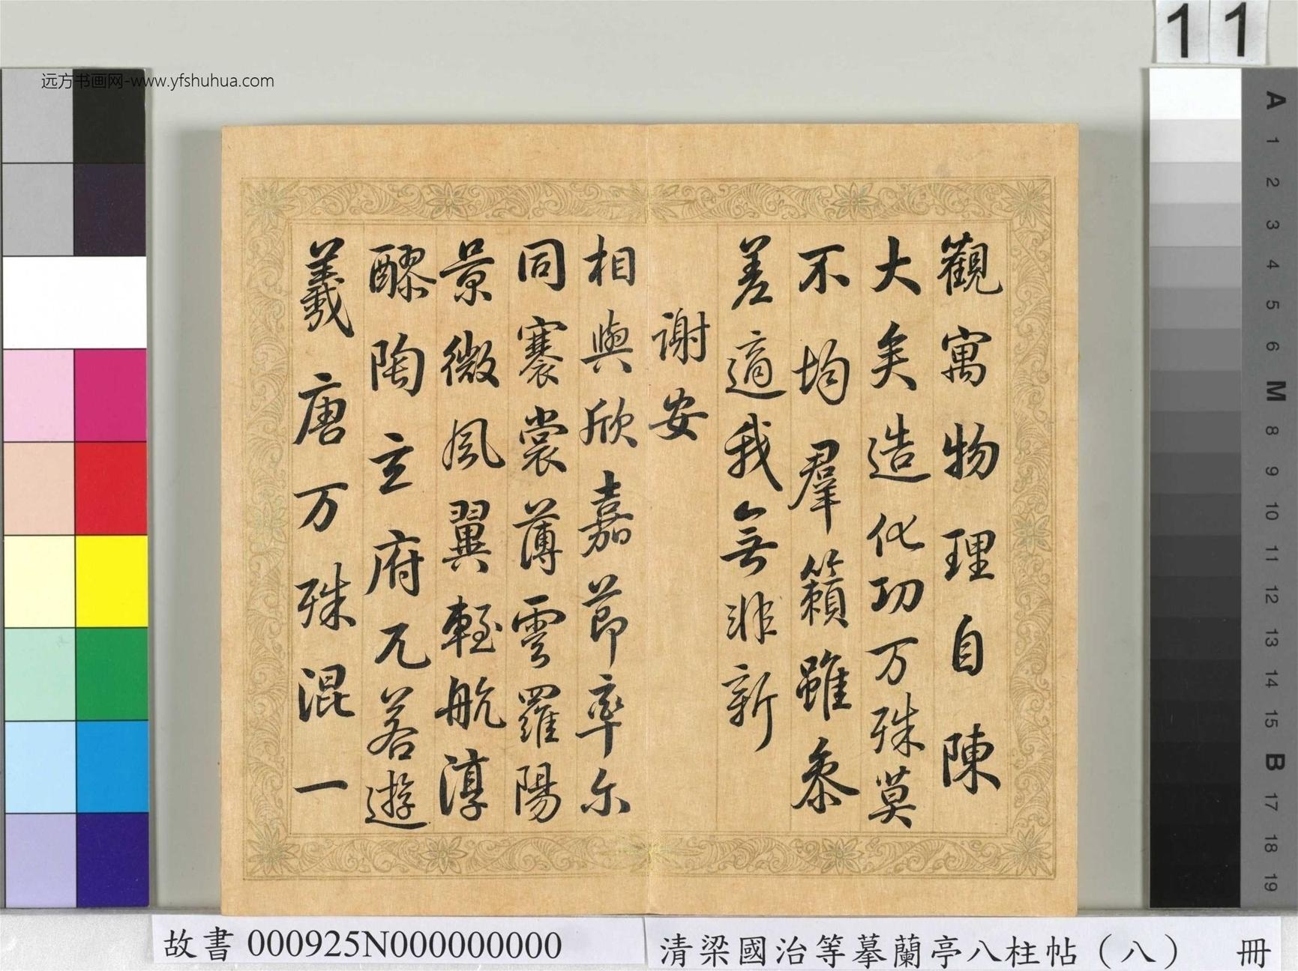 11
远方书画网-www.yfshuhua.com
觀寓物理自陳
大矣造化功万殊莫
不均羣籟雖参
差適我無非新
謝安
相與欣嘉莭率尔
同褰裳薄雲羅陽
景微風翼輕航淳
醪陶玄府兀若遊
羲唐万殊混一
A
1
2
3
4
5
6
M
8
9
10
11
12
13
14
15
B
17
18
19
故書 000925N000000000
清梁國治等摹蘭亭八柱帖（八） 冊